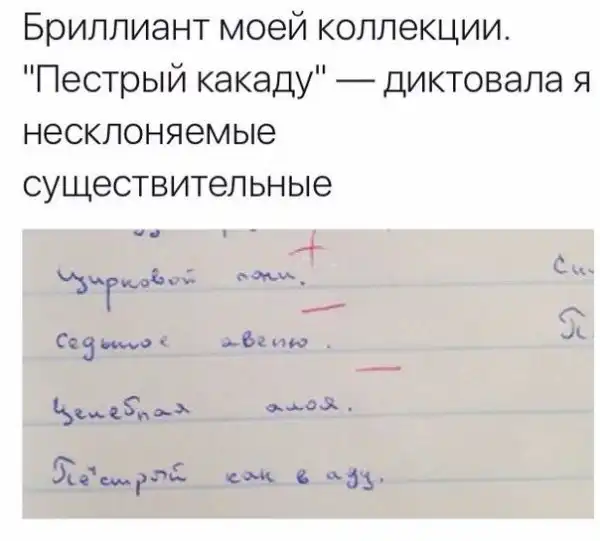 Бриллиант моей коллекции.
"Пестрый какаду" — диктовала я
несклоняемые
существительные
цирковой пони. +
Си
седьмое авеню. —
П
Целебная алоя. —
Пёстрый как в аду.